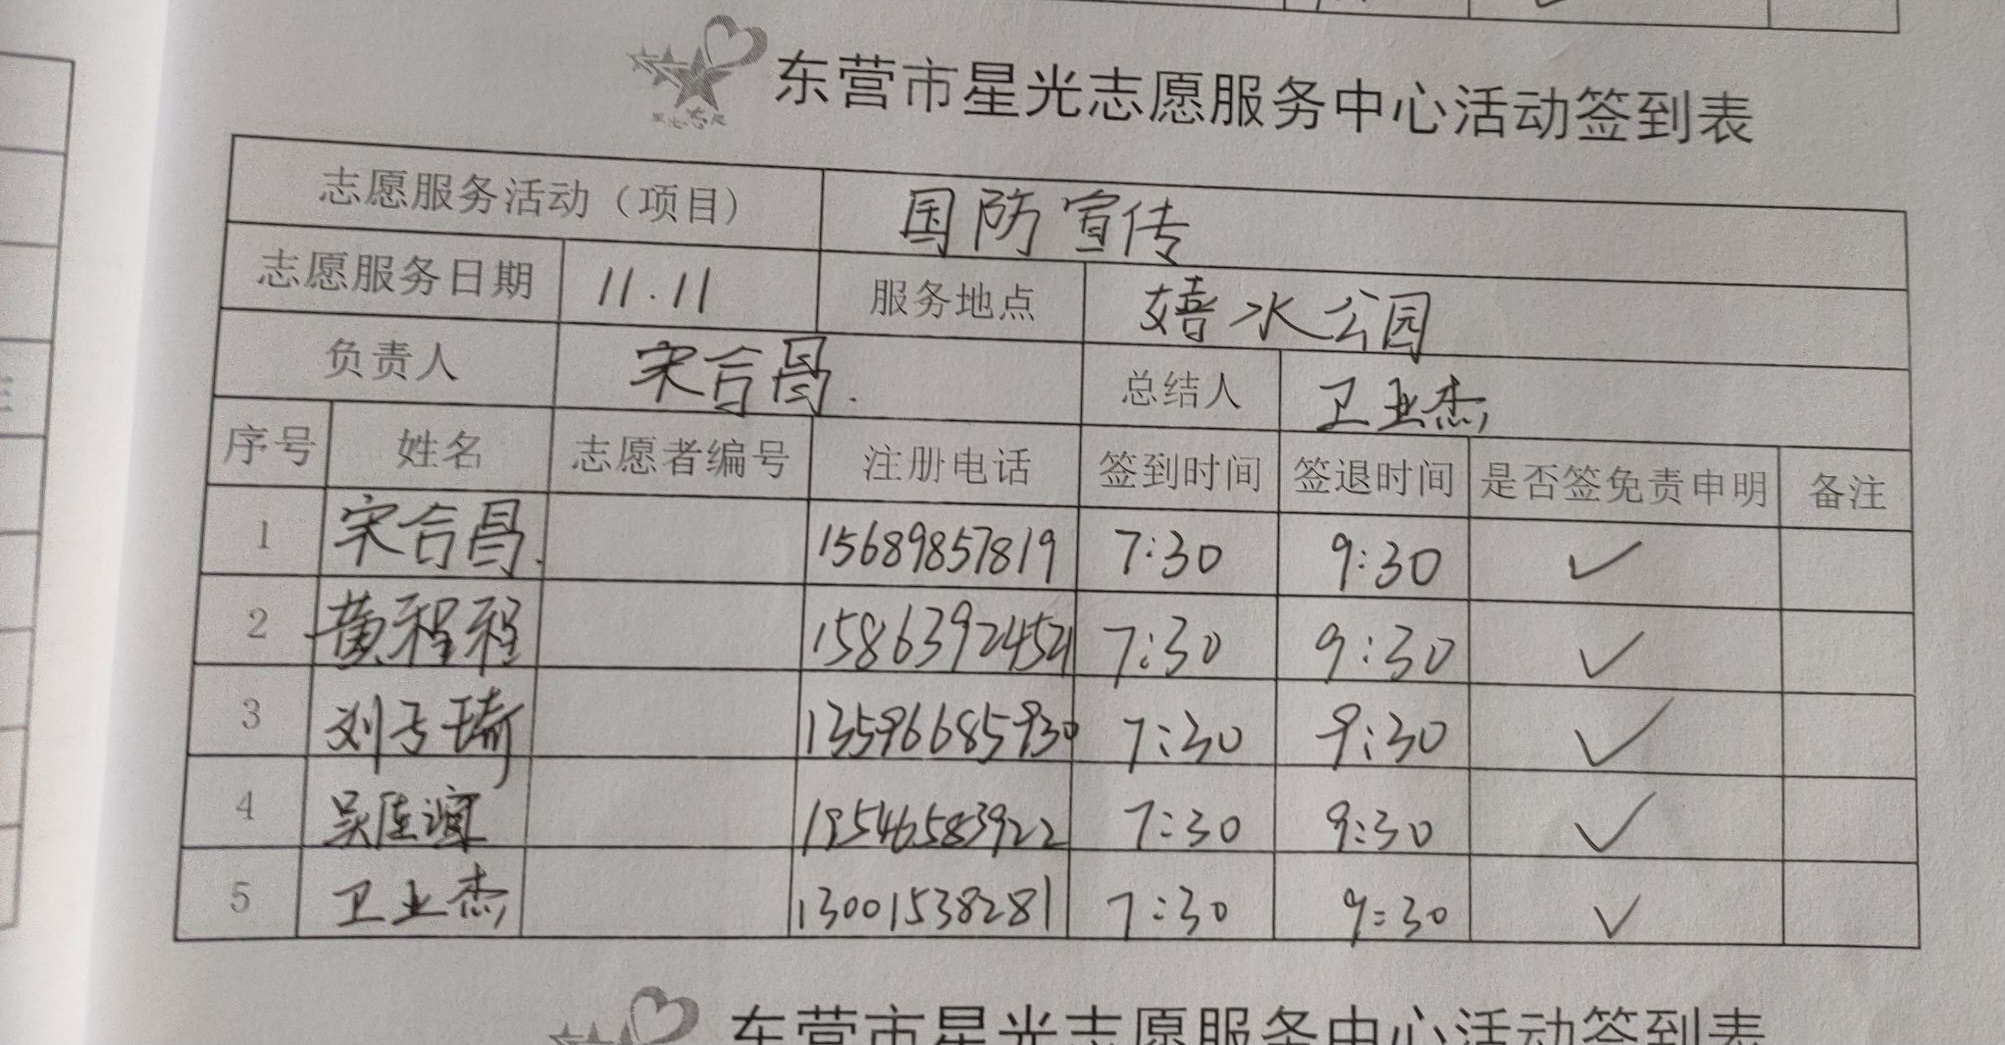 东营市星光志愿服务中心活动签到表
志愿服务活动（项目） 国防宣传
志愿服务日期 11.11 服务地点 嬉水公园
负责人 宋合昌. 总结人 卫业杰
序号 姓名 志愿者编号 注册电话 签到时间 签退时间 是否签免责申明 备注
1 宋合昌. 15689857819 7:30 9:30 ✓
2 黄程程 15863924521 7:30 9:30 ✓
3 刘子琦 13596685930 7:30 9:30 ✓
4 19546583922 7:30 9:30 ✓
5 卫业杰 13001538281 7:30 9:30 ✓
东营市星光志愿服务中心活动签到表